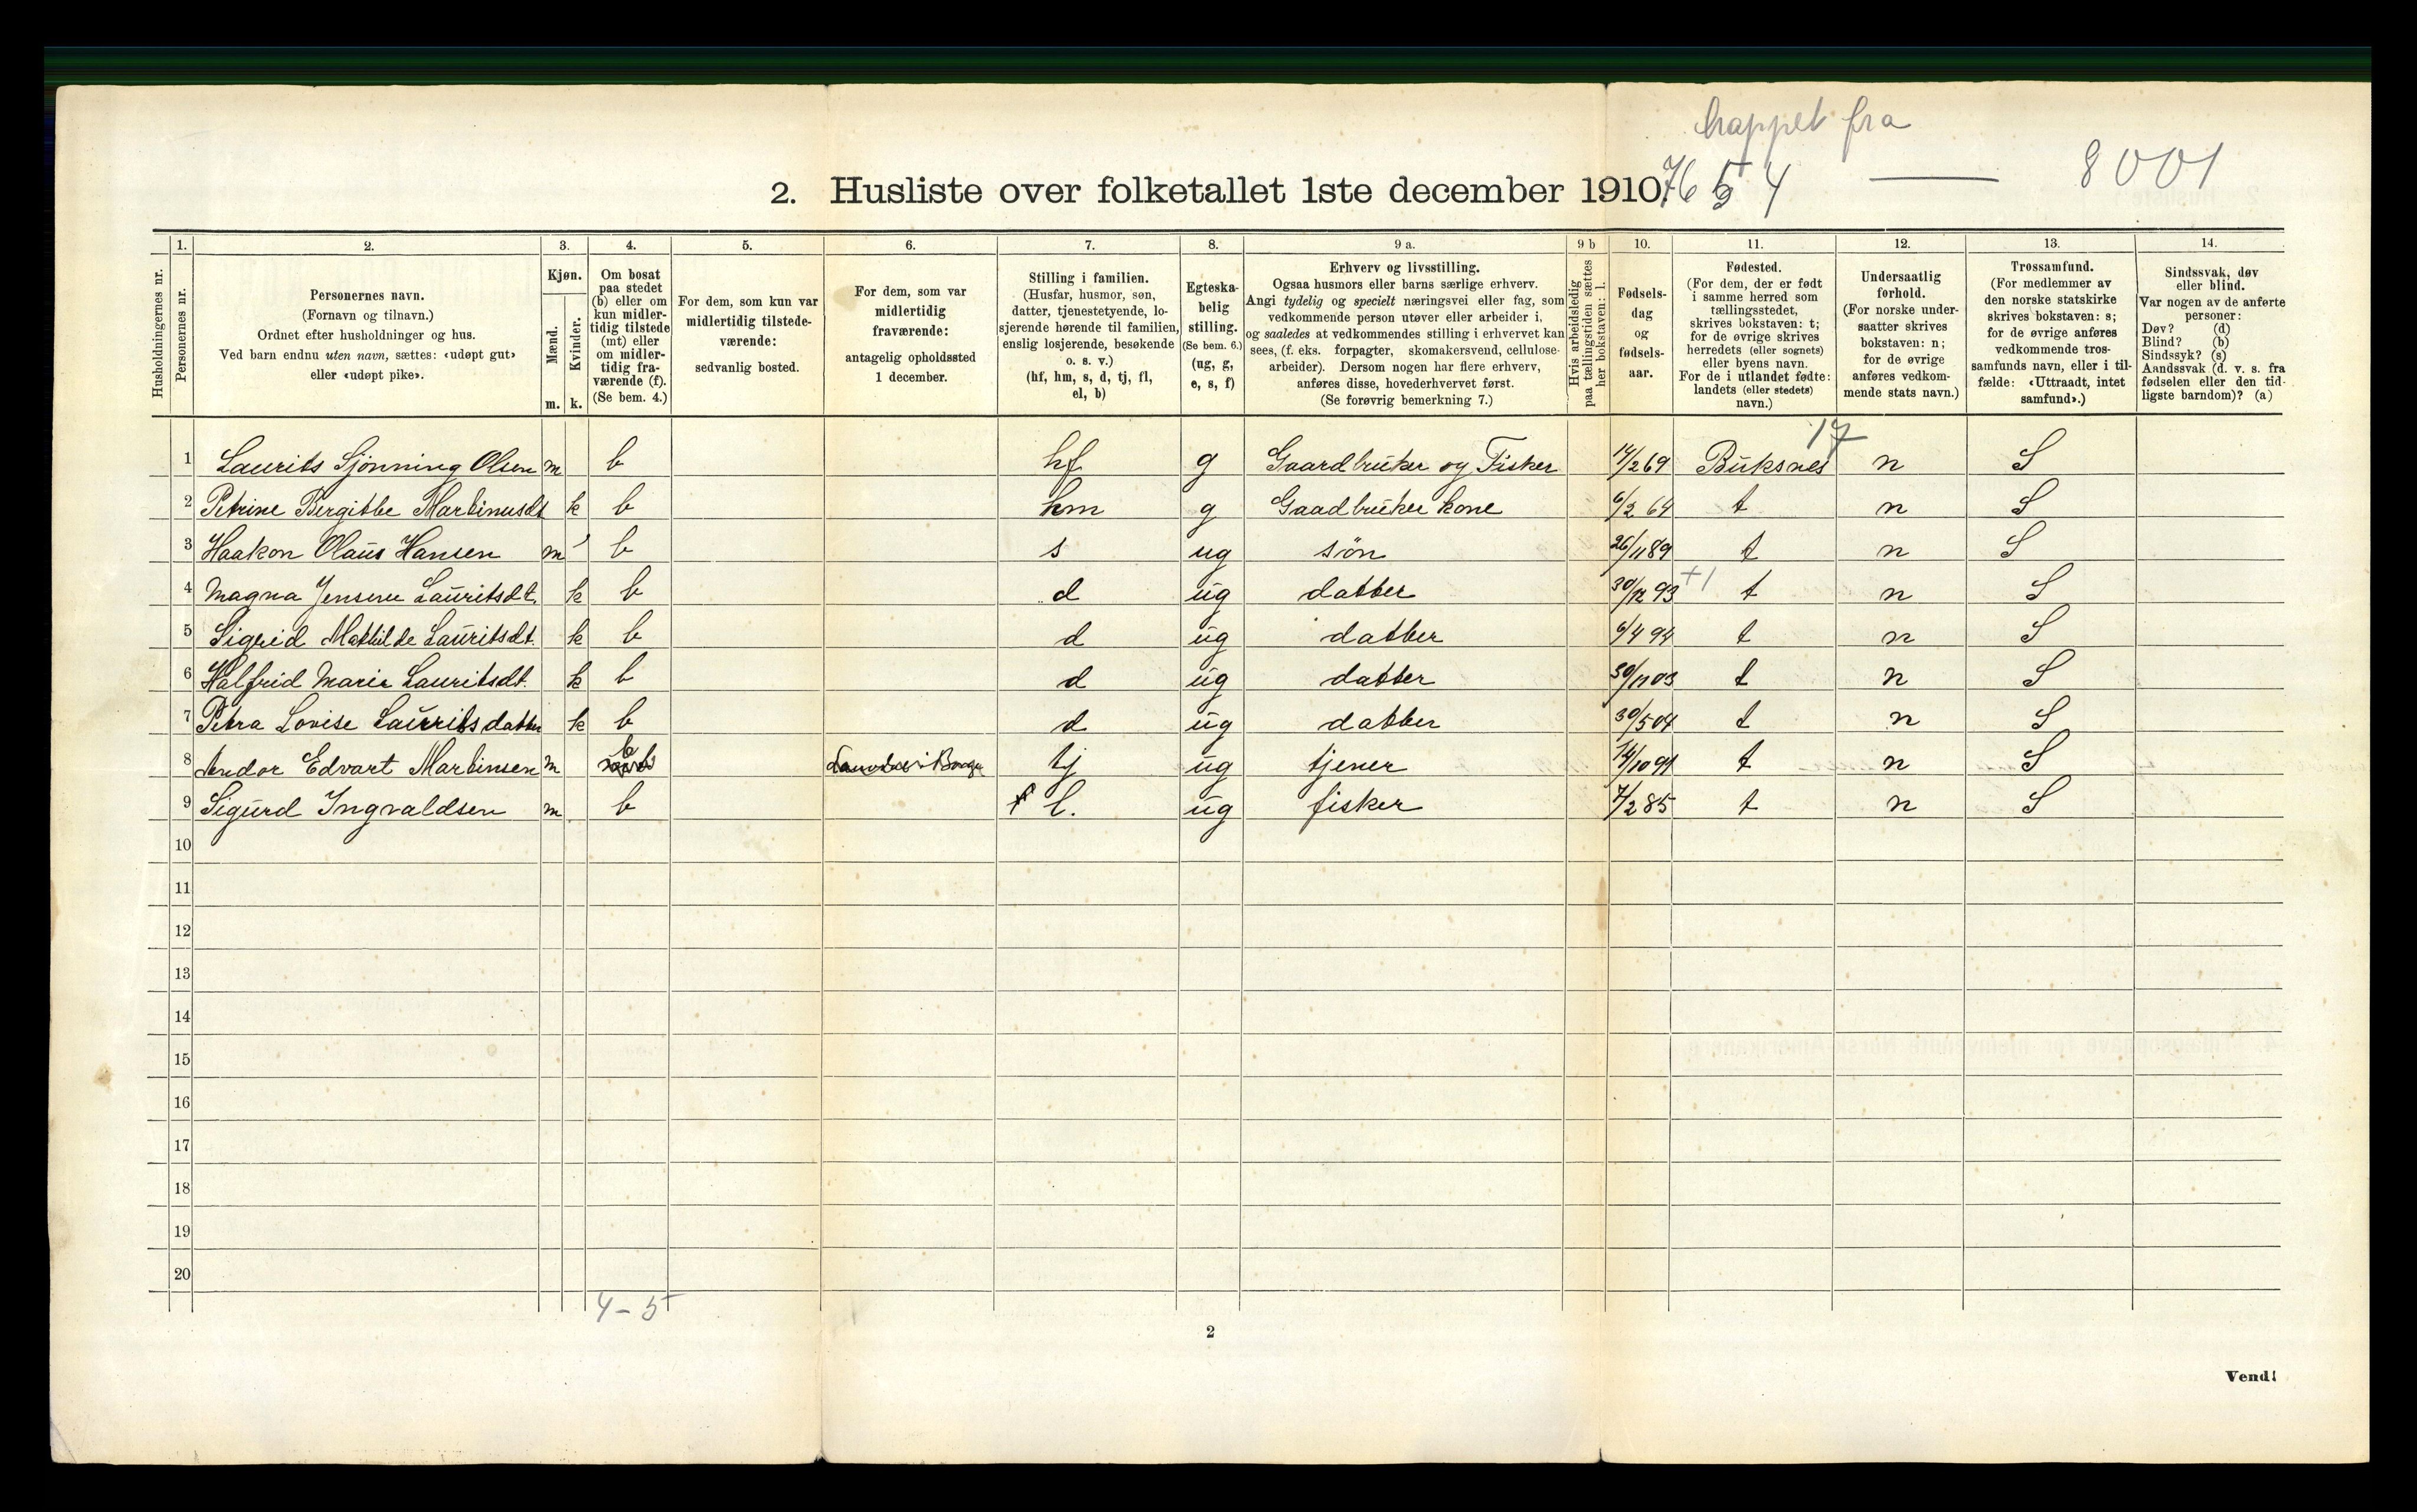 hoppet fra
2. Husliste over folketallet 1ste december 1910. 7654 — 8001
Husholdningernes nr.
1.
Personernes nr.
2.
Personernes navn.
(Fornavn og tilnavn.)
Ordnet efter husholdninger og hus.
Ved barn endnu uten navn, sættes: «udøpt gut»
eller «udøpt pike».
3.
Kjøn.
Mænd.
Kvinder.
m. k.
4.
Om bosat
paa stedet
(b) eller om
kun midler-
tidig tilstede
(mt) eller
om midler-
tidig fra-
værende (f).
(Se bem. 4.)
5.
For dem, som kun var
midlertidig tilstede-
værende:
sedvanlig bosted.
6.
For dem, som var
midlertidig
fraværende:
antagelig opholdssted
1 december.
7.
Stilling i familien.
(Husfar, husmor, søn,
datter, tjenestetyende, lo-
sjerende hørende til familien,
enslig losjerende, besøkende
o. s. v.)
(hf, hm, s, d, tj, fl,
el, b)
8.
Egteska-
belig
stilling.
(Se bem. 6.)
(ug, g,
e, s, f)
9 a.
Erhverv og livsstilling.
Ogsaa husmors eller barns særlige erhverv.
Angi tydelig og specielt næringsvei eller fag, som
vedkommende person utøver eller arbeider i,
og saaledes at vedkommendes stilling i erhvervet kan
sees, (f. eks. forpagter, skomakersvend, cellulose-
arbeider). Dersom nogen har flere erhverv,
anføres disse, hovederhvervet først.
(Se forøvrig bemerkning 7.)
9 b
Hvis arbeidsledig
paa tællingstiden sættes
her bokstaven: l.
10.
Fødsels-
dag
og
fødsels-
aar.
11.
Fødested.
(For dem, der er født
i samme herred som
tællingsstedet,
skrives bokstaven: t;
for de øvrige skrives
herredets (eller sognets)
eller byens navn.
For de i utlandet fødte:
landets (eller stedets)
navn.)
12.
Undersaatlig
forhold.
(For norske under-
saatter skrives
bokstaven: n;
for de øvrige
anføres vedkom-
mende stats navn.)
13.
Trossamfund.
(For medlemmer av
den norske statskirke
skrives bokstaven: s;
for de øvrige anføres
vedkommende tros-
samfunds navn, eller i til-
fælde: «Uttraadt, intet
samfund».)
14.
Sindssvak, døv
eller blind.
Var nogen av de anførte
personer:
Døv? (d)
Blind? (b)
Sindssyk? (s)
Aandssvak (d. v. s. fra
fødselen eller den tid-
ligste barndom)? (a)
17
1 Laurits Sjönning Olsen m b hf g Gaardbruker og Fisker 14/2 69 Buksnes n S
2 Petrine Bergitte Martinusdt k b hm g Gaadbruker kone 6/2 64 t n S
3 Haakon Olaus Hansen m b s ug sön 26/11 89 t n S
4 Magna Jensine Lauritsdt. k b d ug datter 30/12 93 +1 t n S
5 Sigrid Mathilde Lauritsdt. k b d ug datter 6/4 94 t n S
6 Halfrid Marie Lauritsdt. k b d ug datter 30/11 03 t n S
7 Petra Lovise Lauritsdatter k b d ug datter 30/5 04 t n S
8 Andor Edvart Martinsen m b tj ug tjener 14/10 91 t n S
9 Sigurd Ingvaldsen m b f l. ug fisker 7/2 85 t n S
10
11
12
13
14
15
16
17
18
19
20
4-5
2
Vend!